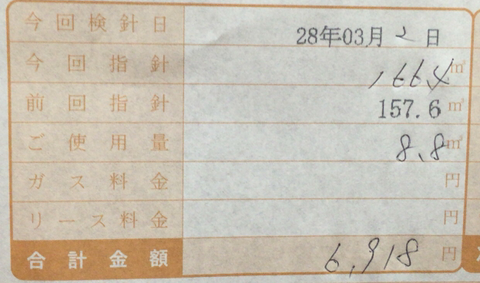 今回検針日 28年03月2日
今回指針 166.4㎥
前回指針 157.6㎥
ご使用量 8.8㎥
ガス料金 円
リース料金 円
合計金額 6,918円